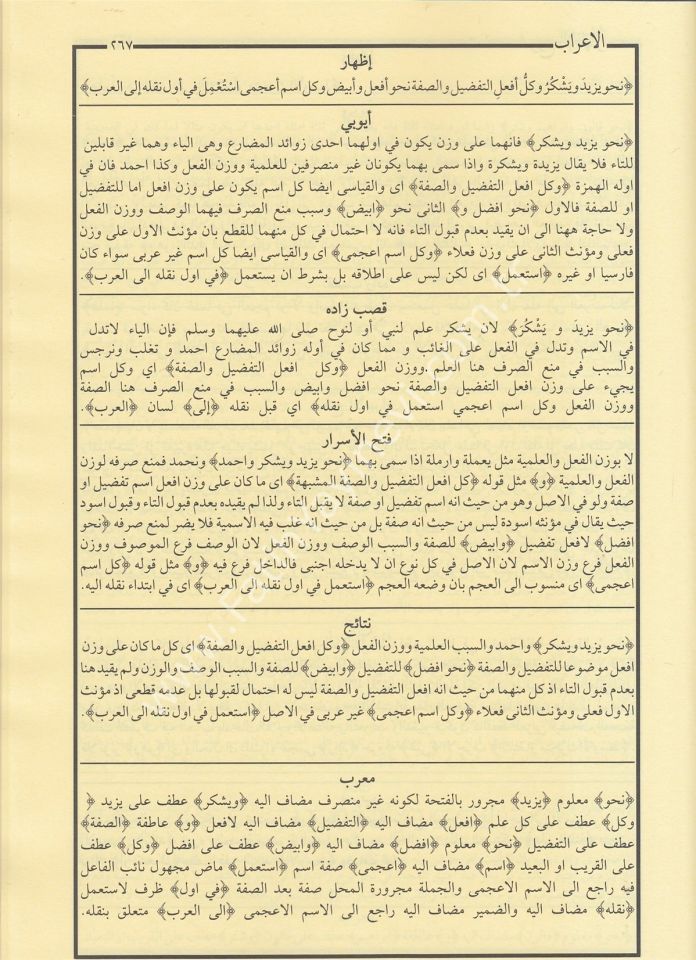 الاعراب ٢٦٧
إظهار
﴿نحو يزيدَ ويَشْكُرُ وكلُّ أفعلِ التفضيل والصفة نحو أفعل وأبيض وكل اسم أعجمى اسْتُعْمِلَ في أول نقله إلى العرب﴾
أيوبي
﴿نحو يزيد ويشكر﴾ فانهما على وزن يكون في اولهما احدى زوائد المضارع وهى الياء وهما غير قابلين
للتاء فلا يقال يزيدة ويشكرة واذا سمى بهما يكونان غير منصرفين للعلمية ووزن الفعل وكذا احمد فان في
اوله الهمزة ﴿وكل افعل التفضيل والصفة﴾ اى والقياسى ايضا كل اسم يكون على وزن افعل اما للتفضيل
او للصفة فالاول ﴿نحو افضل و﴾ الثانى نحو ﴿ابيض﴾ وسبب منع الصرف فيهما الوصف ووزن الفعل
ولا حاجة ههنا الى ان يقيد بعدم قبول التاء فانه لا احتمال في كل منهما للقطع بان مؤنث الاول على وزن
فعلى ومؤنث الثانى على وزن فعلاء ﴿وكل اسم اعجمى﴾ اى والقياسى ايضا كل اسم غير عربى سواء كان
فارسيا او غيره ﴿استعمل﴾ اى لكن ليس على اطلاقه بل بشرط ان يستعمل ﴿في اول نقله الى العرب﴾.
قصب زاده
﴿نحو يزيدَ و يَشْكُرَ﴾ لان يشكر علم لنبي أو لنوح صلى الله عليهما وسلم فإن الياء لاتدل
في الاسم وتدل في الفعل على الغائب و مما كان في أوله زوائد المضارع احمد و تغلب ونرجس
والسبب في منع الصرف هنا العلم ووزن الفعل ﴿وكل افعل التفضيل والصفة﴾ اي وكل اسم
يجيء على وزن افعل التفضيل والصفة نحو افضل وابيض والسبب في منع الصرف هنا الصفة
ووزن الفعل وكل اسم اعجمي استعمل في اول نقله﴾ اي قبل نقله ﴿إلى﴾ لسان ﴿العرب﴾.
فتح الأسرار
لا بوزن الفعل والعلمية مثل يعملة وارملة اذا سمى بهما ﴿نحو يزيد ويشكر واحمد﴾ ونحمد فمنع صرفه لوزن
الفعل والعلمية ﴿و﴾ مثل قوله ﴿كل افعل التفضيل والصفة المشبهة﴾ اى ما كان على وزن افعل اسم تفضيل او
صفة ولو في الاصل وهو من حيث انه اسم تفضيل او صفة لا يقبل التاء ولذا لم يقيده بعدم قبول التاء وقبول اسود
حيث يقال في مؤنثه اسودة ليس من حيث انه صفة بل من حيث انه غلب فيه الاسمية فلا يضر لمنع صرفه ﴿نحو
افضل﴾ لافعل تفضيل ﴿وابيض﴾ للصفة والسبب الوصف ووزن الفعل لان الوصف فرع الموصوف ووزن
الفعل فرع وزن الاسم لان الاصل في كل نوع ان لا يدخله اجنبى فالداخل فرع فيه ﴿و﴾ مثل قوله ﴿كل اسم
اعجمى﴾ اى منسوب الى العجم بان وضعه العجم ﴿استعمل في اول نقله الى العرب﴾ اى في ابتداء نقله اليه.
نتائج
﴿نحو يزيد ويشكر﴾ واحمد والسبب العلمية ووزن الفعل ﴿وكل افعل التفضيل والصفة﴾ اى كل ما كان على وزن
افعل موضوعا للتفضيل والصفة ﴿نحو افضل﴾ للتفضيل ﴿وابيض﴾ للصفة والسبب الوصف والوزن ولم يقيد هنا
بعدم قبول التاء اذ كل منهما من حيث انه افعل التفضيل والصفة ليس له احتمال لقبولها بل عدمه قطعى اذ مؤنث
الاول فعلى ومؤنث الثانى فعلاء ﴿وكل اسم اعجمى﴾ غير عربى في الاصل ﴿استعمل في اول نقله الى العرب﴾.
معرب
﴿نحو﴾ معلوم ﴿يزيد﴾ مجرور بالفتحة لكونه غير منصرف مضاف اليه ﴿ويشكر﴾ عطف على يزيد ﴿
وكل﴾ عطف على كل علم ﴿افعل﴾ مضاف اليه ﴿التفضيل﴾ مضاف اليه لافعل ﴿و﴾ عاطفة ﴿الصفة﴾
عطف على التفضيل ﴿نحو﴾ معلوم ﴿افضل﴾ مضاف اليه ﴿وابيض﴾ عطف على افضل ﴿وكل﴾ عطف
على القريب او البعيد ﴿اسم﴾ مضاف اليه ﴿اعجمى﴾ صفة اسم ﴿استعمل﴾ ماض مجهول نائب الفاعل
فيه راجع الى الاسم الاعجمى والجملة مجرورة المحل صفة بعد الصفة ﴿في اول﴾ ظرف لاستعمل
﴿نقله﴾ مضاف اليه والضمير مضاف اليه راجع الى الاسم الاعجمى ﴿الى العرب﴾ متعلق بنقله.